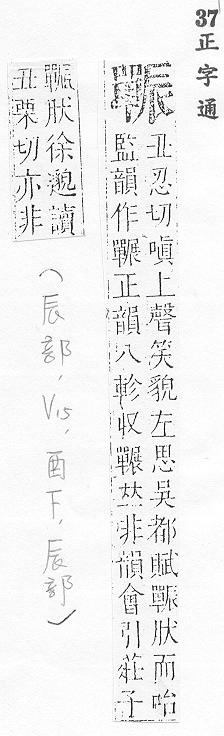 37 正字通
辴
丑忍切嗔上聲笑貌左思吳都賦辴肰而咍
監韻作囅正韻八軫収囅𠀤非韻會引莊子
辴肰徐邈讀
丑栗切亦非
（辰部，V15，酉下，辰部）